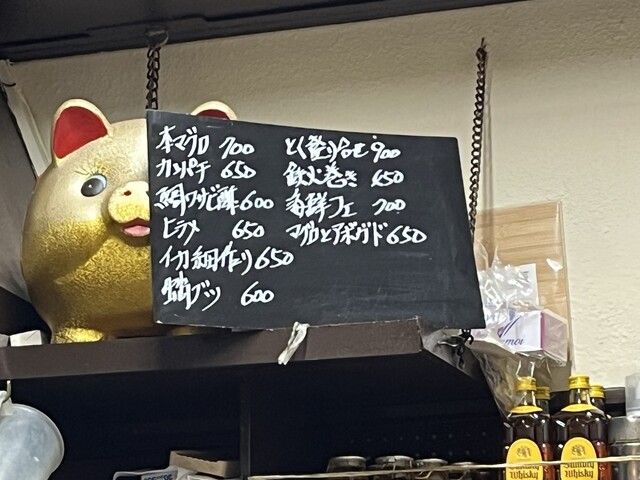 本マグロ 700
カンパチ 650
鯛ワサビ 600
ヒラメ 650
イカ細作り 650
蛸ブツ 600
とく盛り合せ 900
鉄火巻き 650
海鮮フェ 700
マグロとアボガド 650
SUNTORY
Whisky
SUNTORY
Whisky